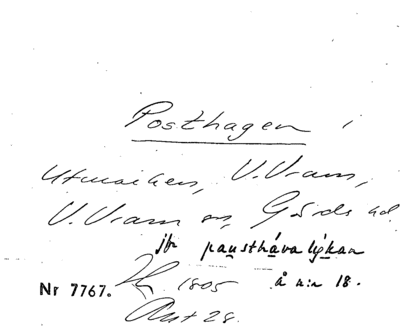 Posthagen i
utmarken, V. Vram,
V. Vram sn, Gärds hd
jfr paustháva lýkan
1805 å n:n 18.
Nr 7767.
Akt 28.